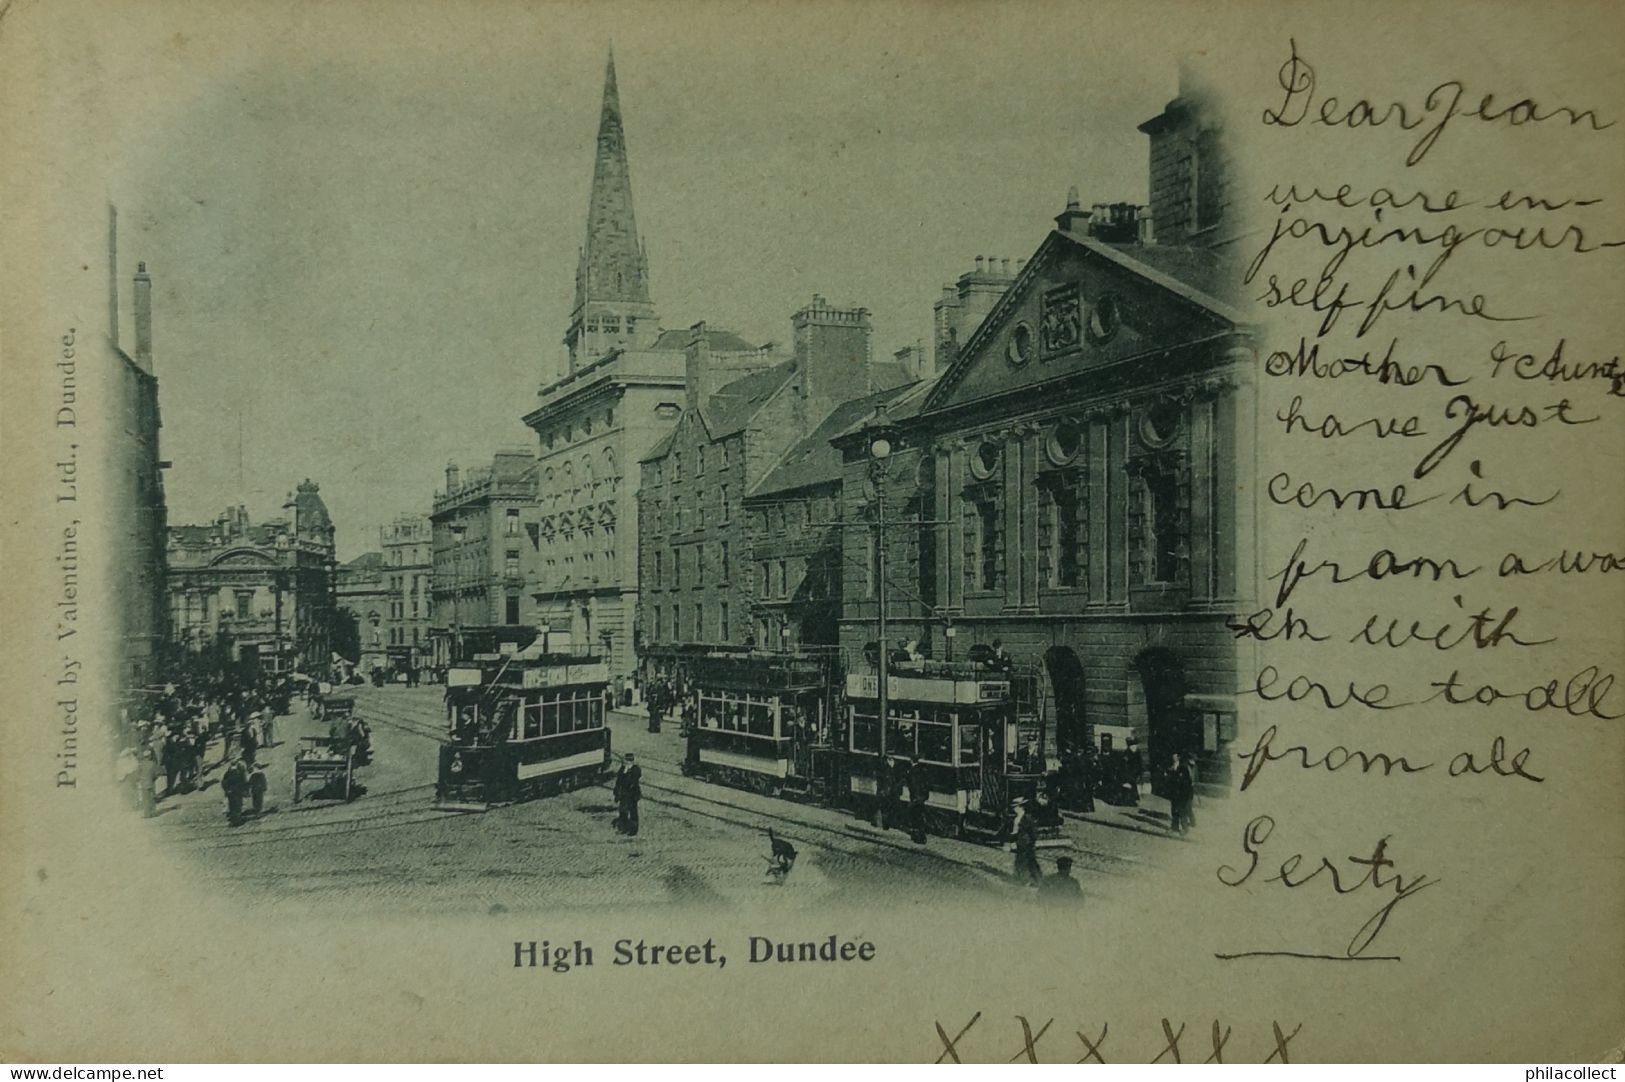 Printed by Valentine, Ltd., Dundee.
High Street, Dundee
Dear Jean
we are en-
joying our-
self fine
Mother & Aunt
have Just
come in
from a wa
lk with
love to all
from all
Gerty
X X X X X X
delcampe.net
philacollect